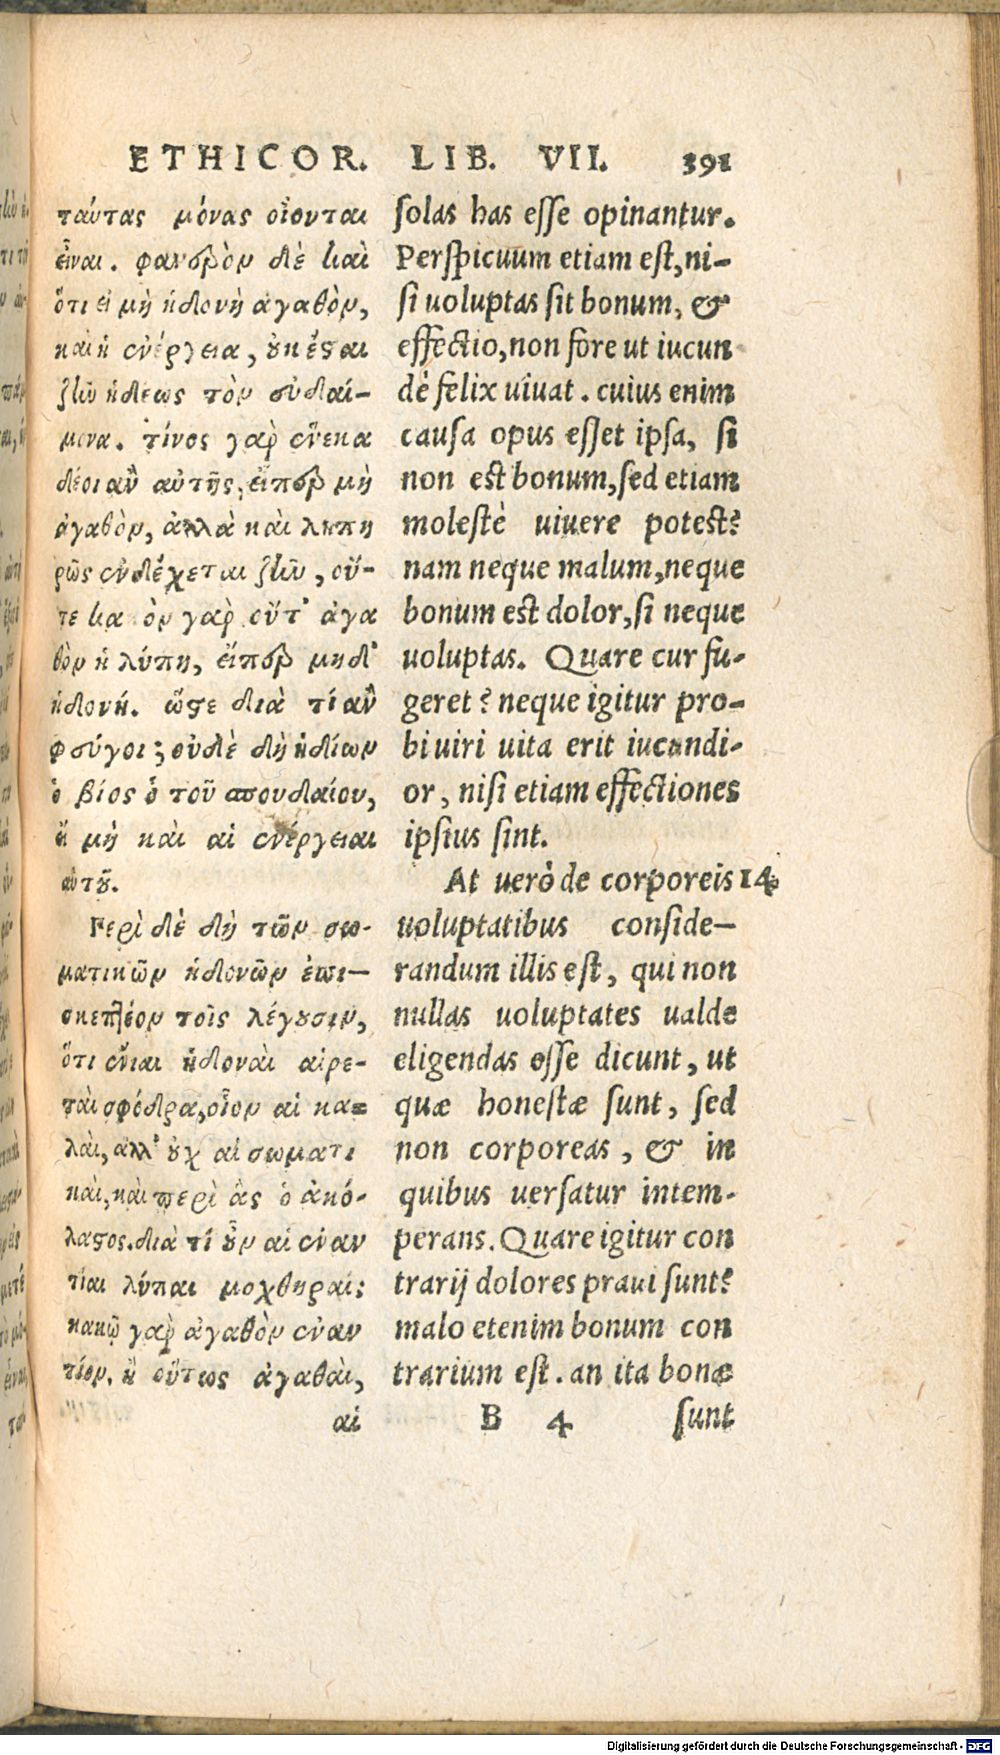 ETHICOR. LIB. VII. 391
ταύτας μόνας οἴονται
εἶναι. φανερὸν δὲ καὶ
ὅτι εἰ μὴ ἡδονὴ ἀγαθὸν,
καὶ ἡ ἐνέργεια, οὐκ ἔσται
ζῆν ἡδέως τὸν εὐδαί-
μονα. τίνος γὰρ ἕνεκα
δέοι ἂν αὐτῆς, εἴπερ μὴ
ἀγαθὸν, ἀλλὰ καὶ λυπη
ρῶς ἐνδέχεται ζῆν, οὔ-
τε κα ὸν γὰρ οὔτ' ἀγα
θὸν ἡ λύπη, εἴπερ μηδ'
ἡδονή. ὥστε διὰ τί ἂν
φεύγοι; οὐδὲ δὴ ἡδίων
ὁ βίος ὁ τοῦ σπουδαίου,
εἰ μὴ καὶ αἱ ἐνέργειαι
αὐτοῦ.
Περὶ δὲ δὴ τῶν σω-
ματικῶν ἡδονῶν ἐπι-
σκεπτέον τοῖς λέγουσιν,
ὅτι ἔνιαι ἡδοναὶ αἱρε-
ταὶ σφόδρα, οἷον αἱ κα-
λαὶ, ἀλλ' οὐχ αἱ σωματι
καὶ, καὶ περὶ ἃς ὁ ἀκό-
λαστος. διὰ τί οὖν αἱ ἐναν
τίαι λύπαι μοχθηραί;
κακῷ γὰρ ἀγαθὸν ἐναν
τίον. ἢ οὕτως ἀγαθαὶ,
αἱ
solas has esse opinantur.
Perspicuum etiam est, ni-
si uoluptas sit bonum, &
effectio, non fore ut iucun
dè felix uiuat. cuius enim
causa opus esset ipsa, si
non est bonum, sed etiam
molestè uiuere potest?
nam neque malum, neque
bonum est dolor, si neque
uoluptas. Quare cur fu-
geret? neque igitur pro-
bi uiri uita erit iucundi-
or, nisi etiam effectiones
ipsius sint.
At uerò de corporeis 14
uoluptatibus conside-
randum illis est, qui non
nullas uoluptates ualde
eligendas esse dicunt, ut
quæ honestæ sunt, sed
non corporeas, & in
quibus uersatur intem-
perans. Quare igitur con
trarij dolores praui sunt?
malo etenim bonum con
trarium est. an ita bonæ
B 4 sunt
Digitalisierung gefördert durch die Deutsche Forschungsgemeinschaft - DFG